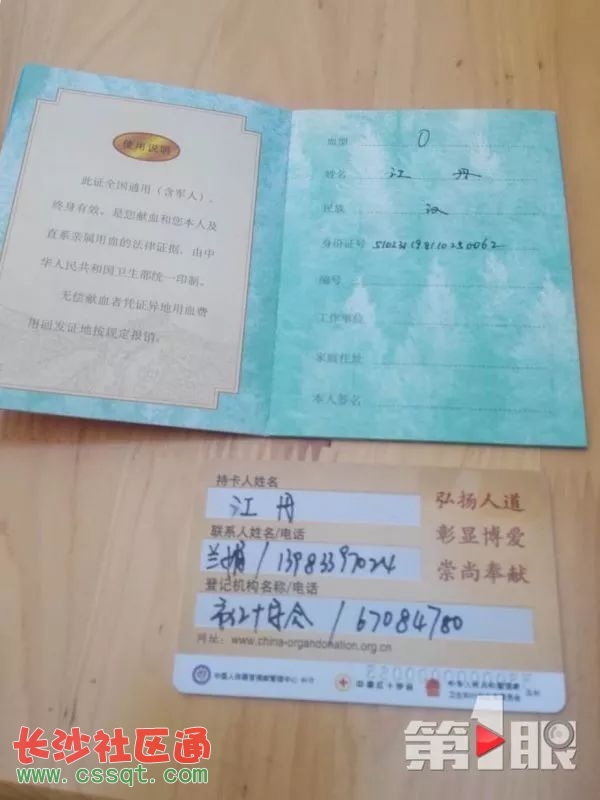 使用说明
此证全国通用（含军人），
终身有效。是您献血和您本人及
直系亲属用血的法律证据。由中
华人民共和国卫生部统一印制。
无偿献血者凭证异地用血费
用回发证地按规定报销。
血型 O
姓名 江丹
民族 汉
身份证号 510231198110250062
编号
工作单位
家庭住址
本人签名
持卡人姓名
江丹
联系人姓名/电话
兰娟/13983397024
登记机构名称/电话
市红十字会/67084780
网址：www.china-organdonation.org.cn
弘扬人道
彰显博爱
崇尚奉献
中国人体器官捐献管理中心
中国红十字会
长沙社区通
www.cssqt.com
第1眼